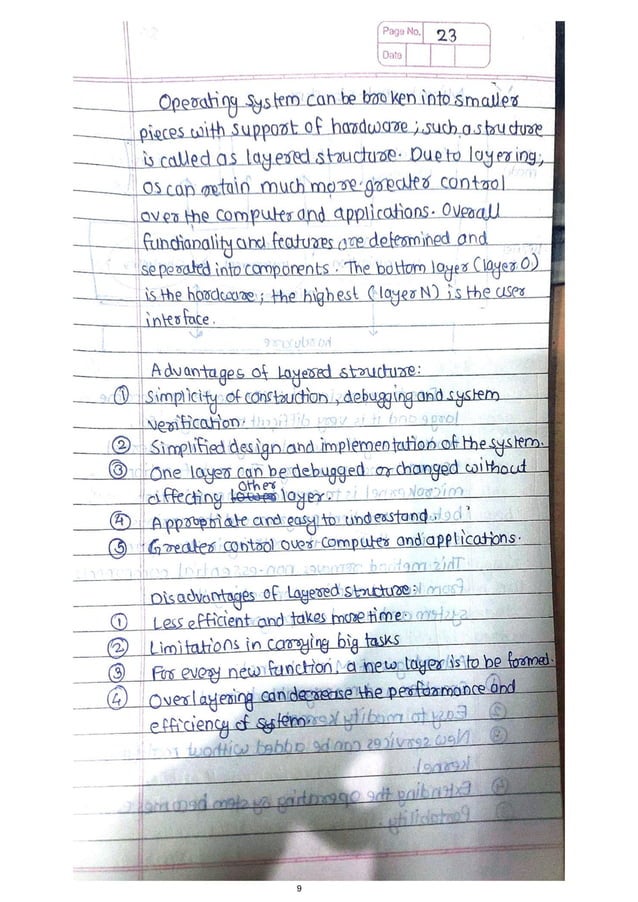 Page No. 23
Date
Operating System can be broken into smaller
pieces with support of hardware ; such a structure
is called as layered structure. Due to layering,
OS can retain much more greater control
over the computer and applications. Overall
functionality and features are determined and
seperated into components. The bottom layer (layer 0)
is the hardware ; the highest (layer N) is the user
interface.
Advantages of Layered structure:
① Simplicity of construction, debugging and system
verification.
② Simplified design and implementation of the system.
③ One layer can be debugged or changed without
Other
affecting lower layer.
④ Appropriate and easy to understand.
⑤ Greater control over computer and applications.
Disadvantages of Layered structure:
① Less efficient and takes more time.
② Limitations in carrying big tasks
③ For every new function, a new layer is to be formed.
④ Overlayering can decrease the performance and
efficiency of system.
9